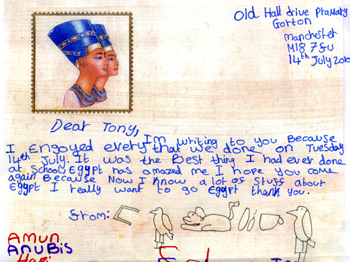 Old Hall drive Primary
Gorton
Manchester
M18 7FU
14th July 2010
Dear Tony,
I'm writing to you Because
I engoyed everythat we done on Tuesday
14th July. It was the Best thing I had ever done
at School. Egypt has amazed me I hope you come
again Because Now I know a lot of stuff about
Egypt I really want to go Egypt thank you.
from:
Amun
Anubis
Hapi